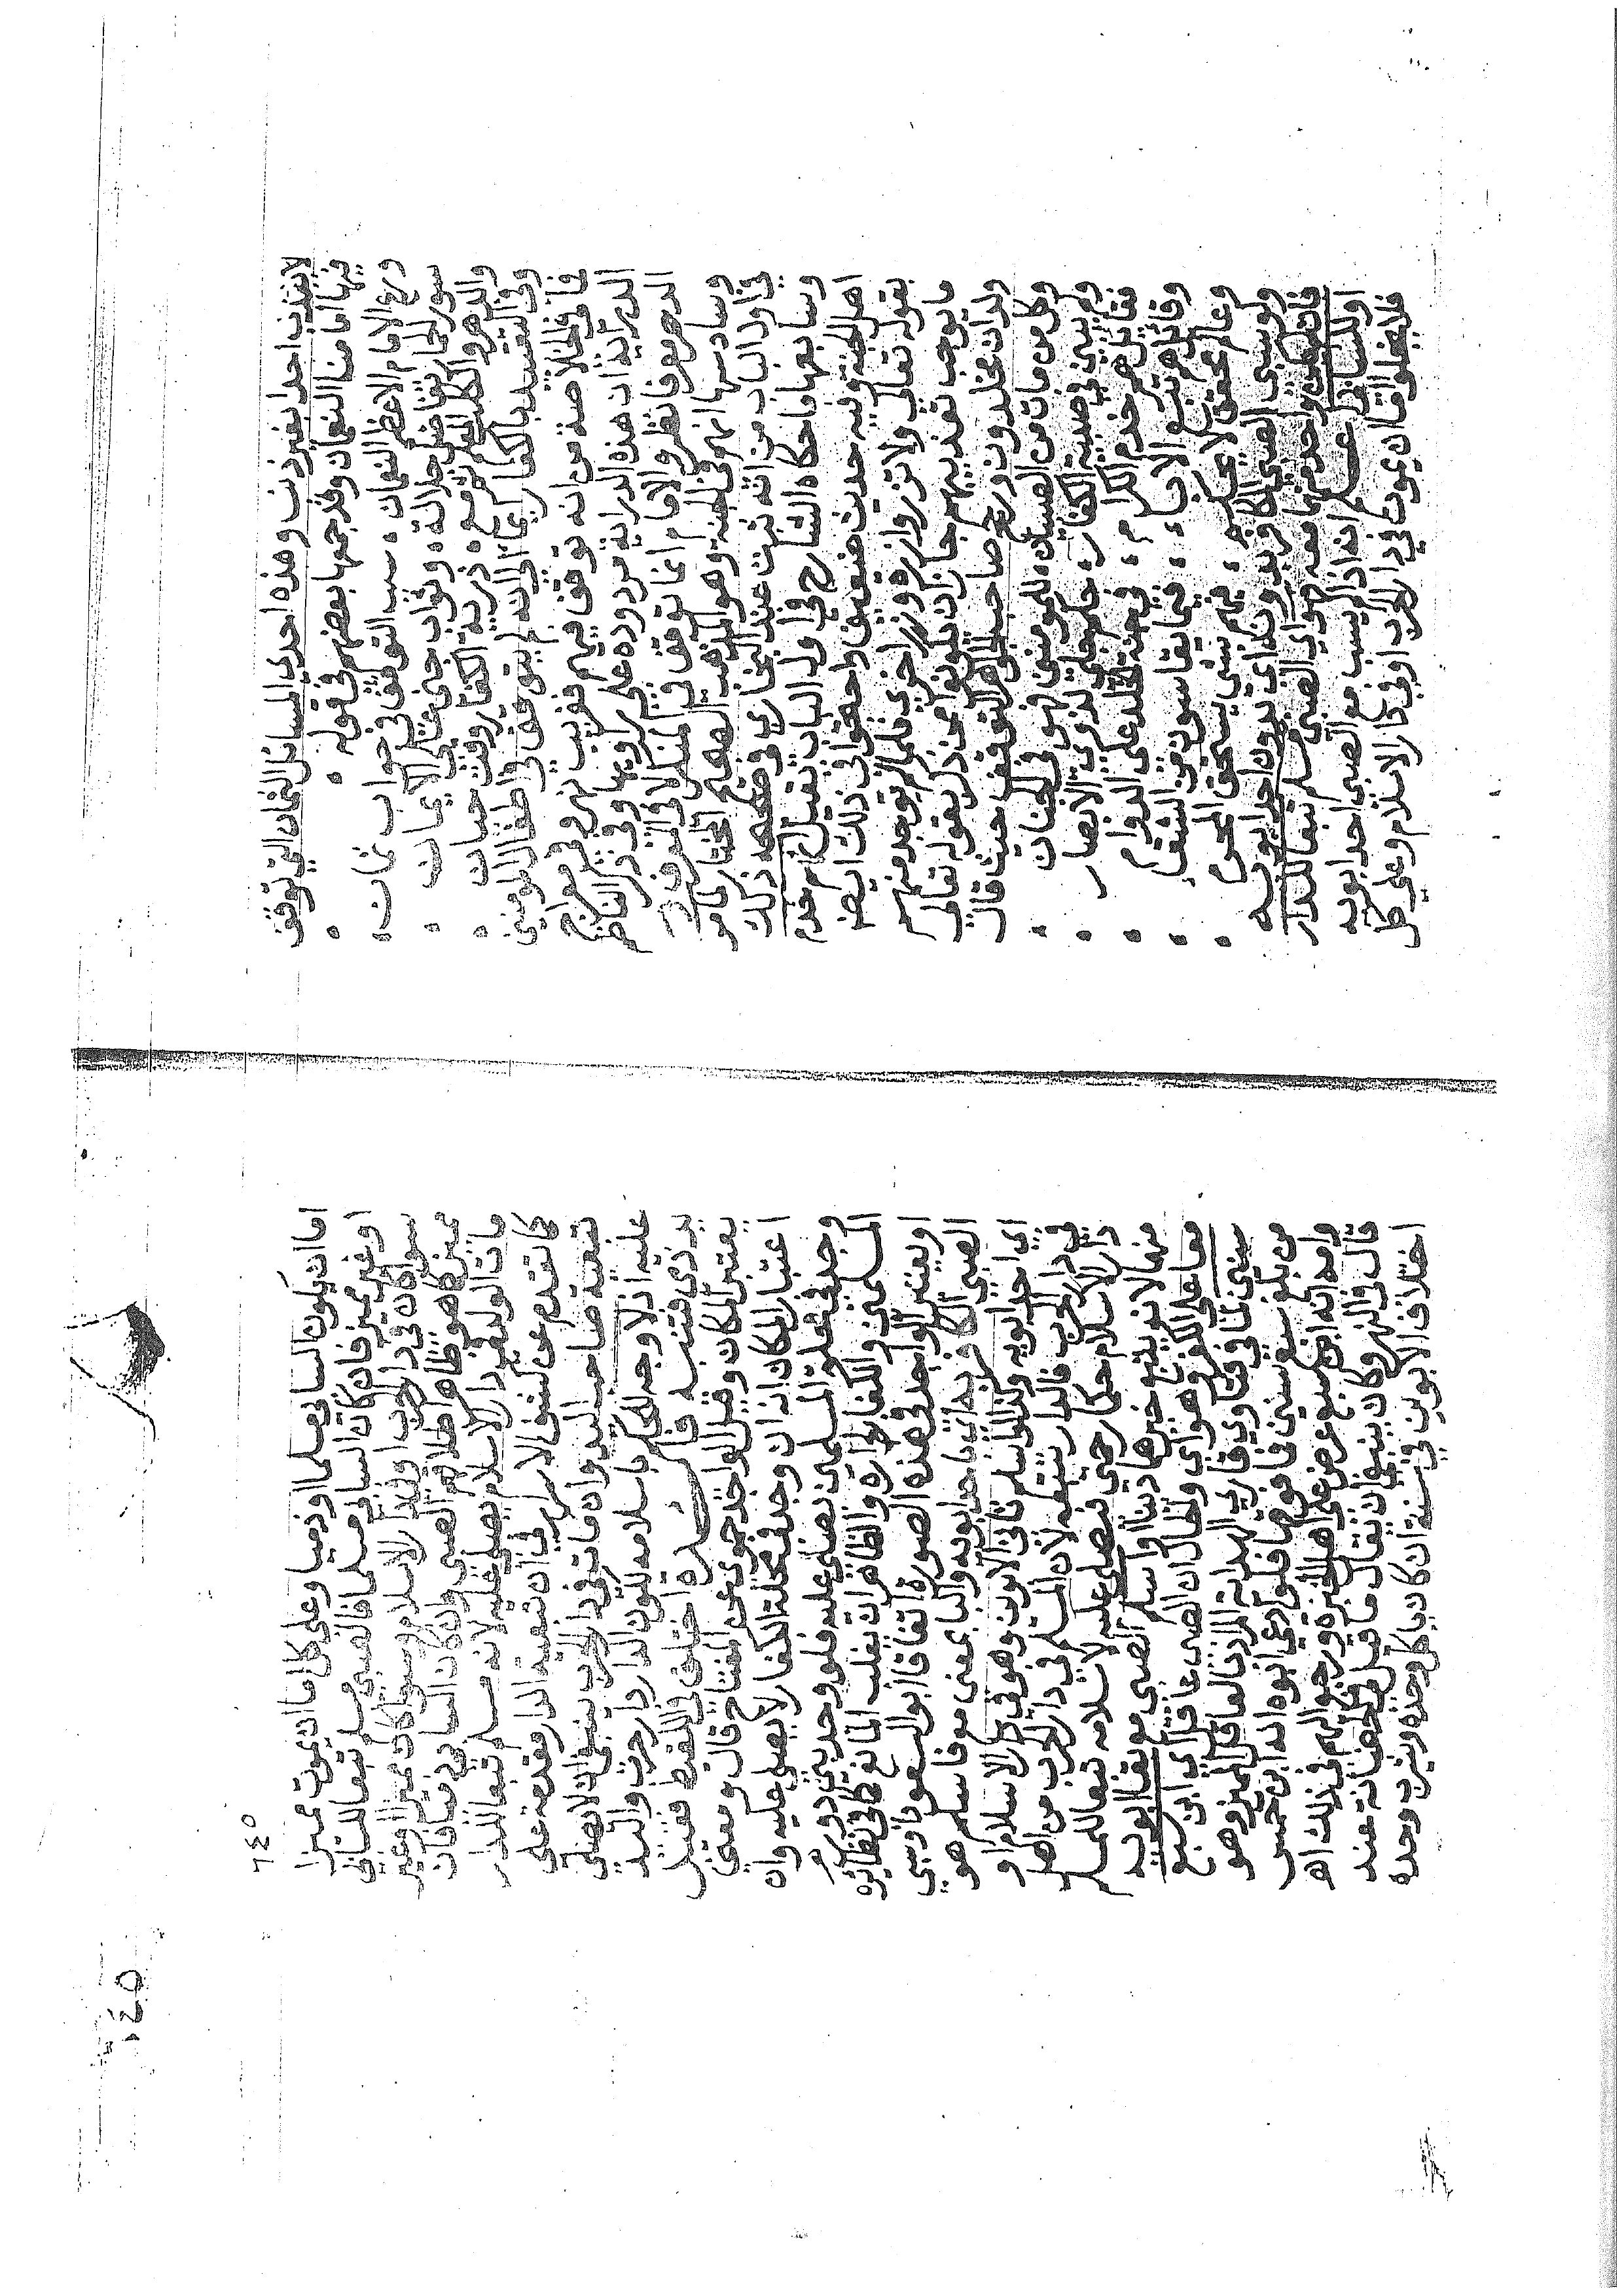 لا يعذب احدا بغير ذنب وهذه احدي المسائل الثمان التي توقف
فيها امامنا النعمان وقد جمعها بعضهم في قوله
ورع الامام الاعظم النعمان سبب التوقف في جواب ثمان
سور الحمار تفاضل جلالة وثواب جني على الايمان
والدهر والكلب المعلم مع ذرية الكفار وقت ختان
وفي التقييد بالكفار ايماء الى انه لم يتوقف في اطفال المومنين
فما في الخلاصة من انه توقف فيهم غريب نهر وفي معراج
الدراية ان هذه الدراية مردوده على راويها وفي درر الناظم
الدهر معرفا نظر والامام انما توقف في المنكر لا في المعرف
وسادسها انهم في الجنة وهو المذهب الصحيح المختار لما مر
في اول الباب من انه ثبت عند البخاري في صحيحه ذلك
وسابعها ما حكاه الشارح في اول الباب بقيل انهم خدم
اهل الجنة وفيه حديث ضعيف واحتجوا في ذلك ايضا
بقوله تعالي ولا تزر وازرة وزر اخري فلما لم يوجد منهم
ما يوجب تعذيبهم جاز ان يكونوا خدما لقوله تعالى
ولدان مخلدون ورجح صاحب الجواهر التوقف حيث قال
وكل من مات من الصبيان للمومنين فهو في الجنان
ولم يبن في صبية الكفار حكم جلي لذوي الابصار
فقايل هم خدم الكرام في جنة الخلد على الدوام
وقايل هم تبع الاباء فيما يقاسون من الشقاء
وعالم محقق لا يحكم فيهم بشي يستحق
ولو سبي الصبي الكافر بدونه اي بدون احد ابويه
فان لم يكن واحد منهما معه فهو اي الصبي مسلم تبعا للدار
او للسابي اعلم انه اذا لم يسب مع الصبي احد ابويه
فلا يخلو اما ان يموت في دار الحرب او في دار الاسلام وعلى كل
اما ان يكون السابي مسلما او ذميا وعلى كل اما ان يموت مميزا
او غير مميز فان كان السابي مسلما فالصبي مسلم تبعا للسابي
سواء كان في دار الحرب او في دار الاسلام وسواء كان مميزا او غير
مميز كما هو ظاهر اطلاقهم الصبي وان كان السابي ذميا فان
مات الولد في دار الاسلام يصلي عليه لانه مسلم تبعا للدار
كما تقدم عن كشف الاسرار في ان تبعية الدار مقدمة على
تبعية صاحب اليد وان مات في دار الحرب ينبغي ان لا يصلى
عليه اذ لا وجه للحكم باسلامه لكون الدار دار حرب واليد
يد ذمي فتنبه اختلف في اللقيط فقيل
يعتبر المكان وقيل الواجد حموي عن المفتاح قال ومعنى
اعتبار المكان انه ان وجد في محلة الكفار لا يصلي عليه وان
وجد في محلة المسلمين يصلي عليه فلو وجد بين دور
المسلمين والكفار والظاهر ان يغلب المانع كما في نظائره
او يعتبر الواجد في هذه الصورة اتفاقا ابو السعود او سبي
الصبي الكافر به اي باحد ابويه والباء بمعني مع فاسلم هو
اي احد ابويه وكذا لو اسلم ثاني الابوين وهو في دار الاسلام او
في دار الحرب فالدار تتبعه لان المسلم في دار الحرب من اهل
دار الاسلام حكما رحمي فيصلي عليه لاسلامه تبعا للمسلم
منهما لانه يتبع خيرهما دينا او اسلم الصبي مع بقاء ابويه
معا على الكفر وهو اي والحال ان الصبي عاقل اي ابن سبع
سنين كما في فتاوي قاري الهداية المراد بالعاقل المميز وهو
من بلغ سبع سنين فما فوقها فلو ادعي ابوه انه ابن خمس
وامه انه ابن سبع عرض على اهل الخبرة ورجع اليهم في ذلك اه
قال في النهر وكان ينبغي ان يقال ما قيل في الحضانة عند
اختلاف الابوين في سنه ان كان ياكل وحده ويشرب وحده